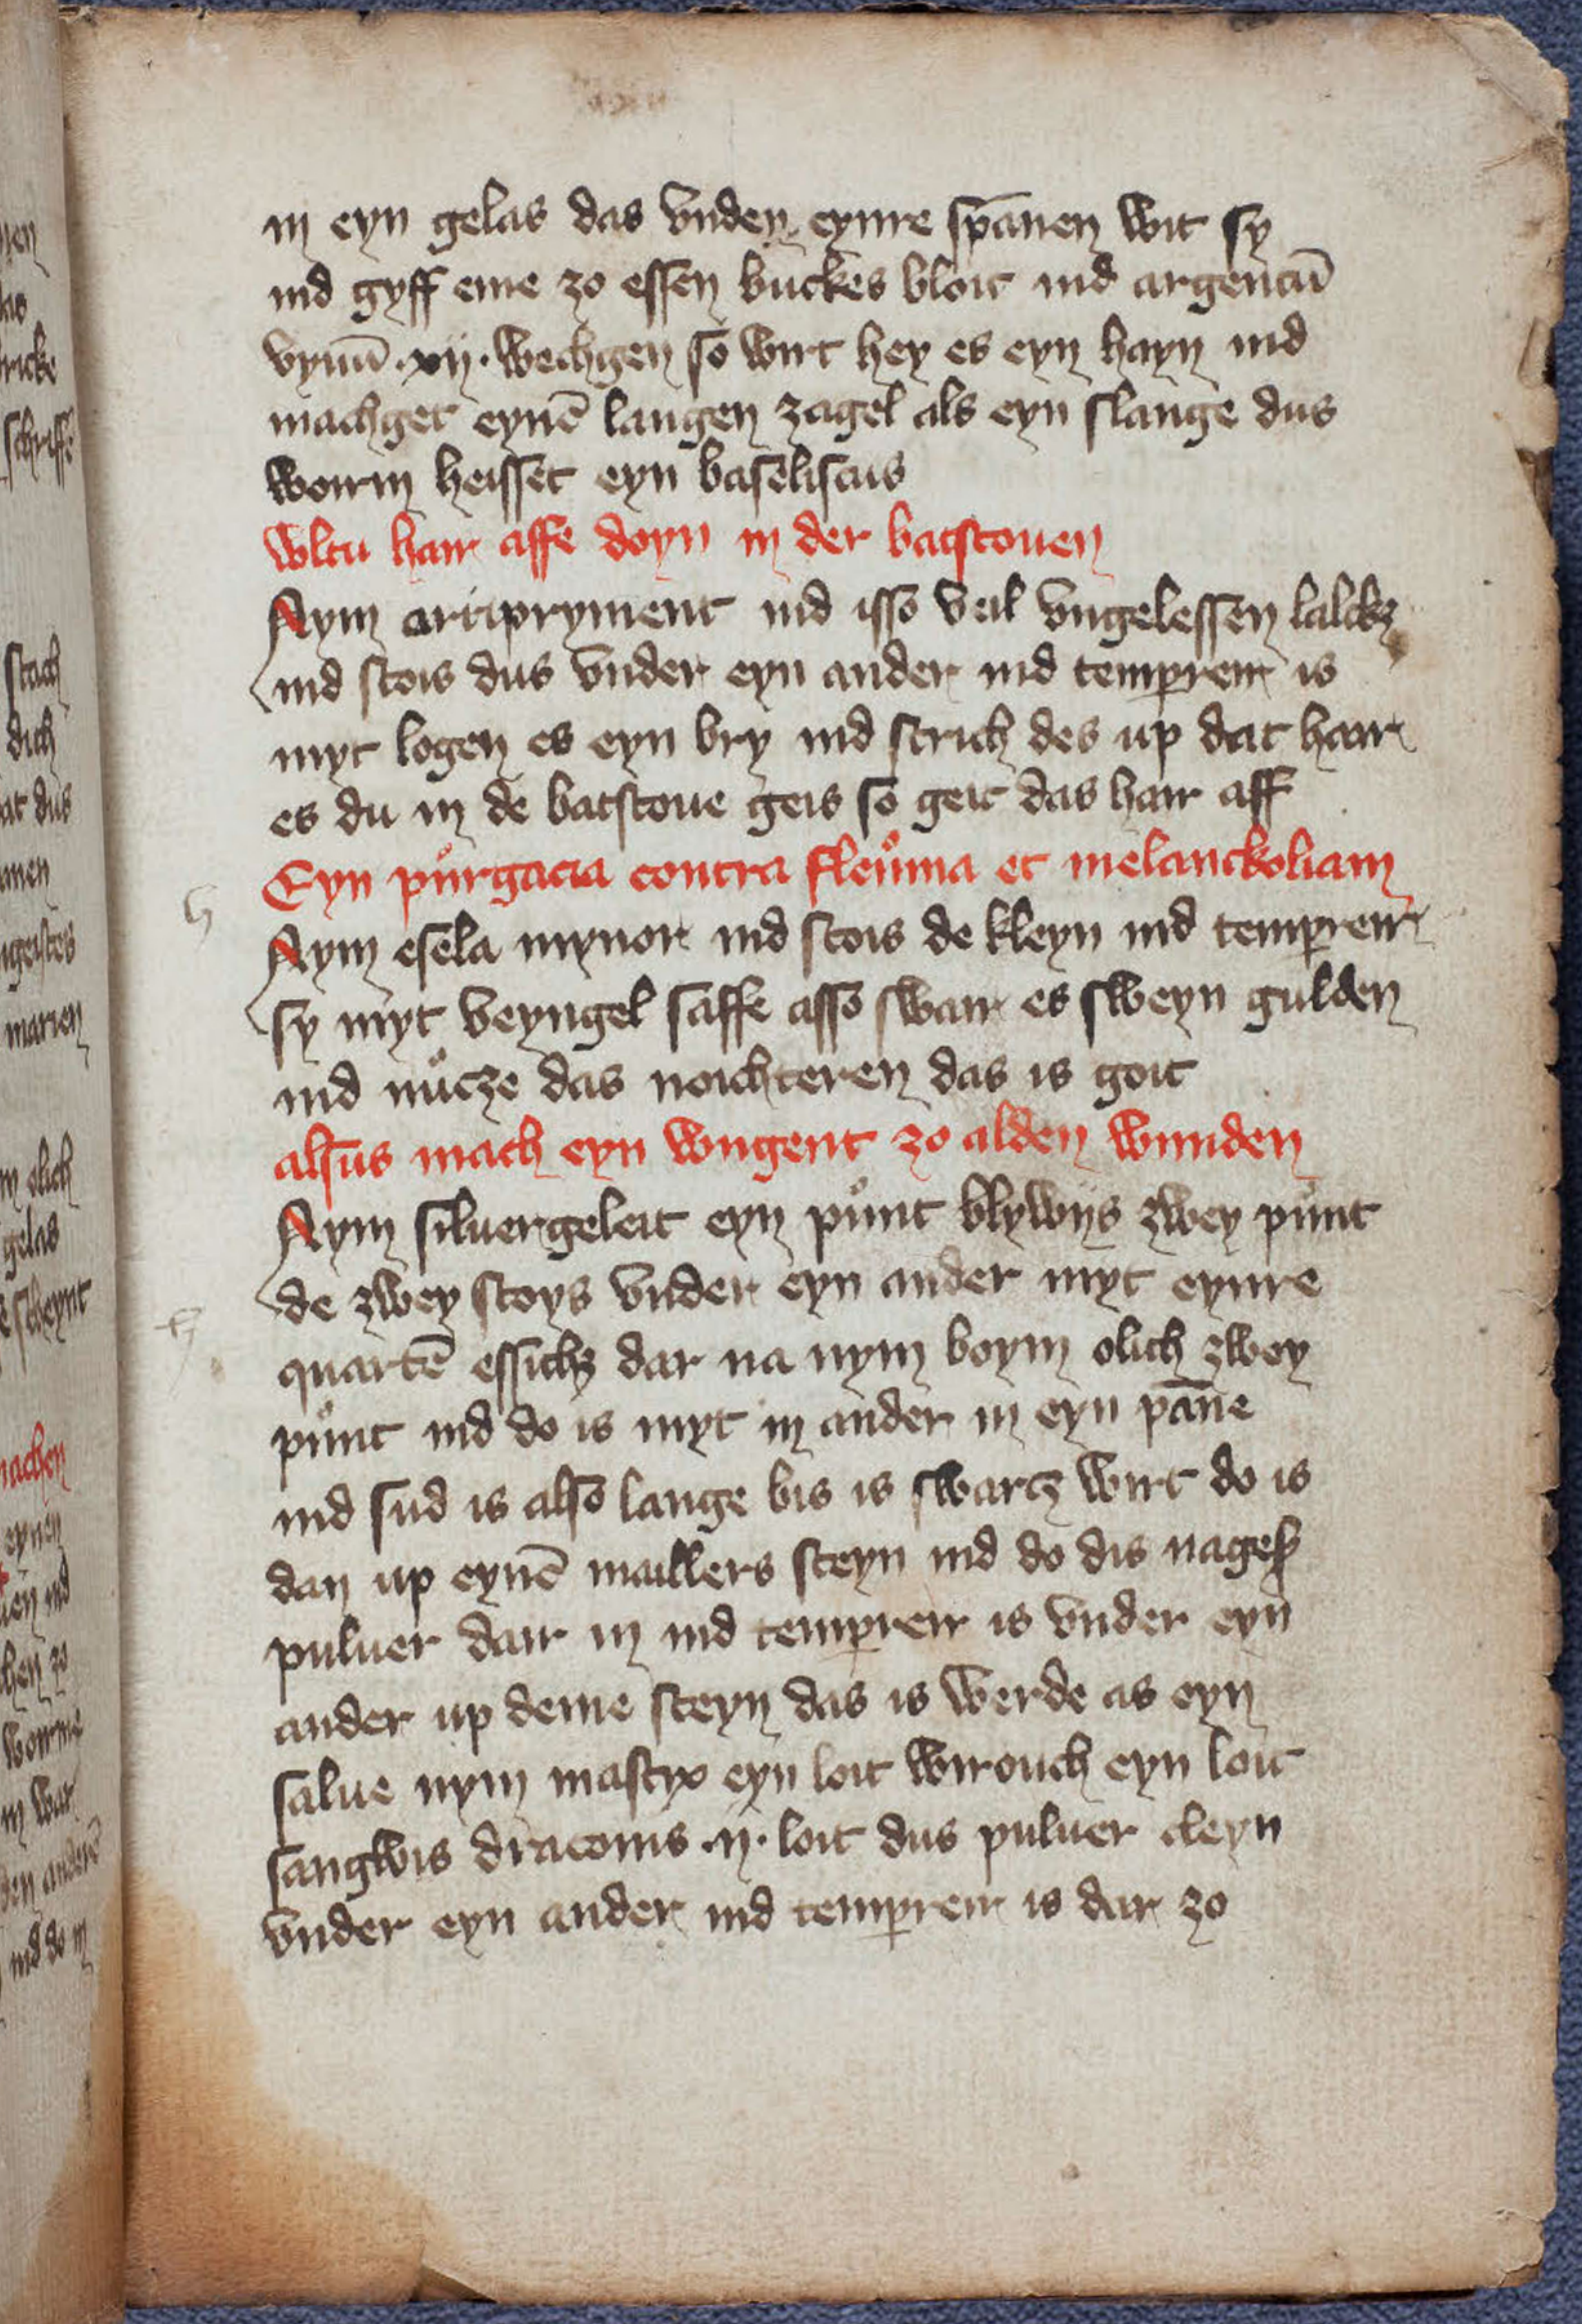 in eyn gelas das vnden eynre spānen wit sy
ind gyff eme zo essen buckes bloit ind argentū
vyuū ·xij· wechgen so wirt hey es eyn hayn ind
machget eynē langen zagel als eyn slange dus
worm heisset eyn baseliscus
wltu hair affe doyn in der batstouen
Nym arripryment ind isso veil vngelessen kalcks
ind stois dus vnder eyn ander ind tempereir is
myt logen es eyn bry ind strich des up dat hair
es du in de batstoue geis so geit das hair aff
Eyn půrgacia contra fleůma et melanckoliam
Nym esela mynor ind stois de kleyn ind tempereir
sy myt veyngel saffe asso swair es sweyn gulden
ind nůcze das noichteren das is goit
alsus mach eyn wngent zo alden wunden
Nym siluergeleit eyn půnt blywijs zwey půnt
de zwey stoys vnder eyn ander myt eynre
quartē essichs dar na nym boym olich zwey
půnt ind do is myt in ander in eyn pāne
ind sud is also lange bis is swartz wirt do is
dan up eynē maillers steyn ind do dis
puluer dair in ind tempereir is vnder eyn
ander up deme steyn das is werde as eyn
salue nym mastyx eyn loit wirouch eyn loit
sangwis draconis ·ij· loit dus puluer cleyn
vnder eyn ander ind tempereir is dar zo